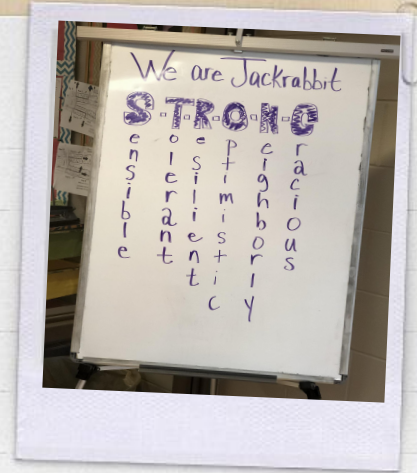 We are Jackrabbit
S-T-R-O-N-G
ensible
olerant
esilient
ptimistic
eighborly
racious